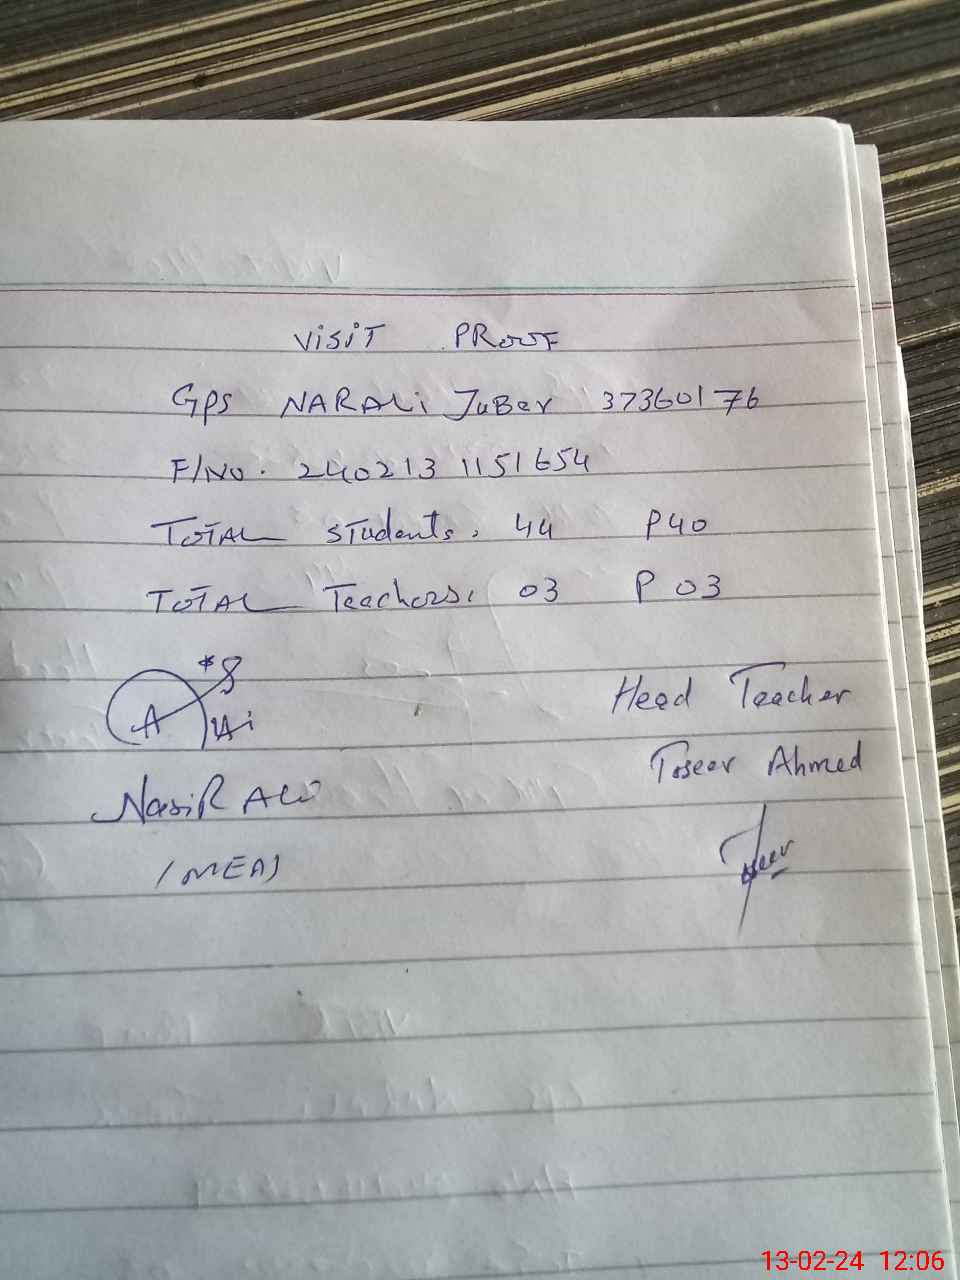 VISIT PROOF
GPS NARALi JuBer 37360176
F/No. 240213 1151654
TOTAL Students. 44 P40
TOTAL Teachers. 03 P 03
Head Teacher
Toseer Ahmed
NasiR Ali
(MEA)
13-02-24 12:06